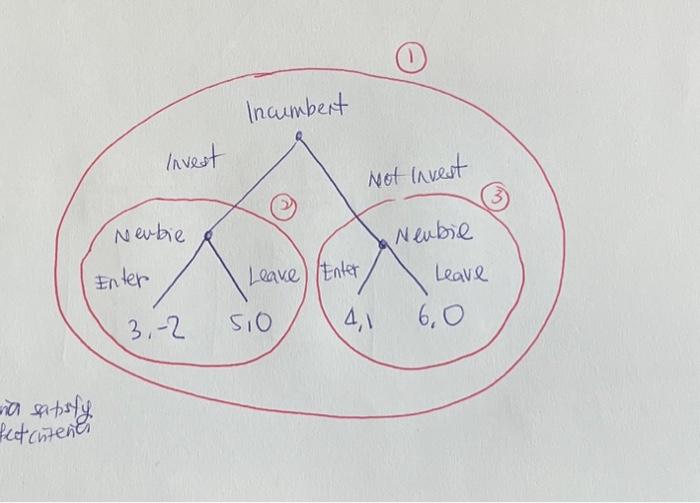 ①
Incumbert
Invest
Not Invest
② ③
Newbie Newbie
Enter Leave Enter Leave
3,-2 5,0 4,1 6,0
satisfy